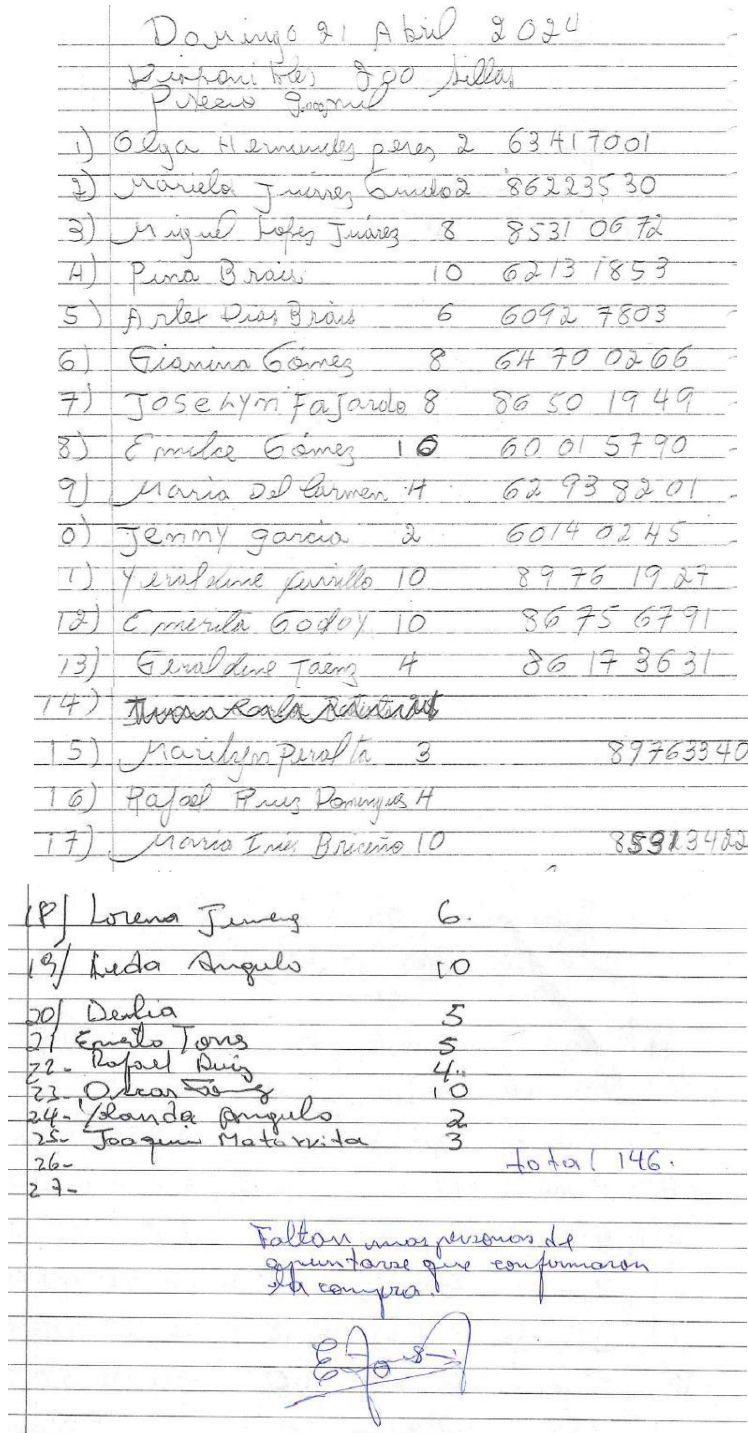 Domingo 21 Abril 2024
Disponibles 200 sillas
Precio
1) Olga Hernandez peres 2 63417001
2) Mariela Juárez 2 86223530
3) Miguel Lopes Juárez 8 8531 06 72
4) Pina Brais 10 6213 1853
5) Arlet Dias Brais 6 6092 7803
6) Gianina Gómez 8 64 70 0266
7) JoseLyn Fajardo 8 86 50 1949
8) Emilce Gómez 10 60 01 5790
9) Maria Del Carmen 4 62 93 8201
0) Jenny garcia 2 6014 0245
1) Yeraldine 10 8976 1927
12) Emerita Godoy 10 8675 6791
13) Geraldine Taenz 4 86 17 3631
14)
15) Marilyn Peralta 3 89763340
16) Rafael Ruiz 4
17) Maria Inés Briceño 10
18) Lorena Jimenez 6.
19) Leda Angulo 10
20) Denlia 5
21 Ernesto Torres 5
22- Rafael Ruiz 4
23. Oscar 10
24- Yolanda Angulo 2
25- Joaquin Matarrita 3
26- total 146.
27-
Faltan unas personas de
apuntarse que confirmaron
la compra.